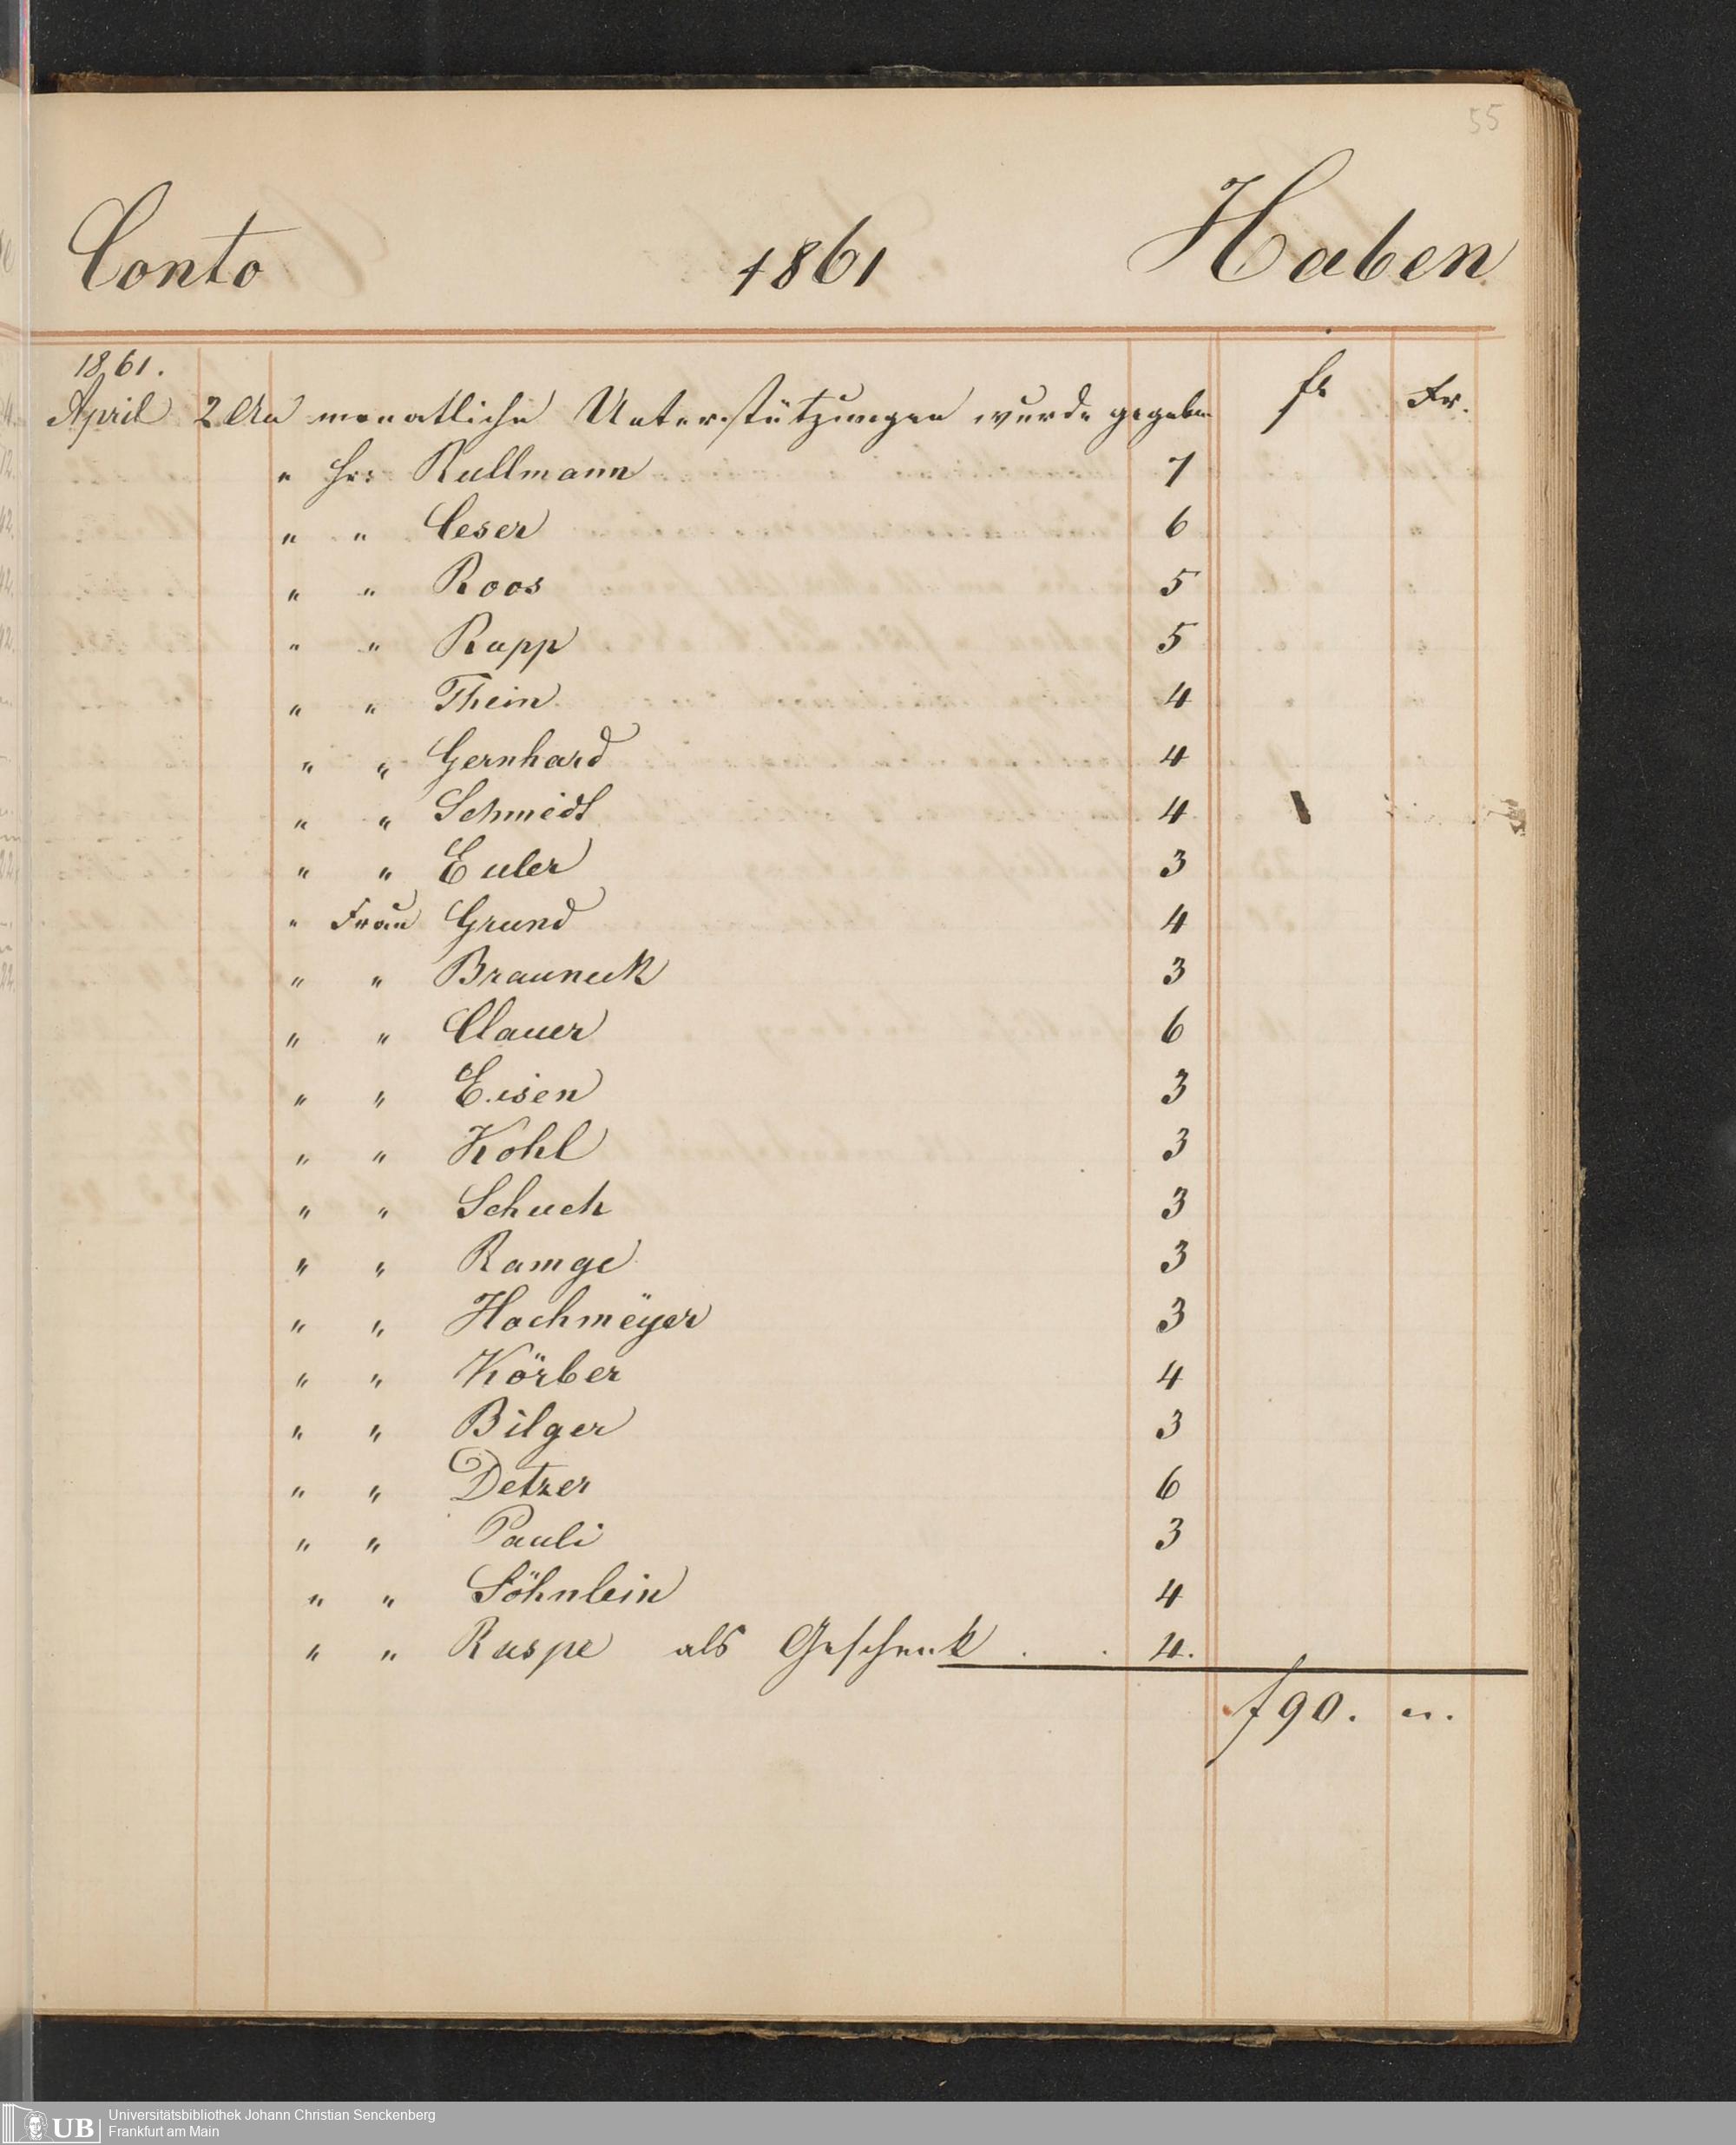 55
Conto 1861 Haben
1861. fl Kr.
April 2 An monatliche Unterstützungen wurde gegeben
" Hr: Rullmann 7
" " Ceser 6
" " Roos 5
" " Rupp 5
" " Thein 4
" " Gernhard 4
" " Schmidt 4
" " Euler 3
" Frau Grund 4
" " Brauneck 3
" " Clauer 6
" " Eisen 3
" " Kohl 3
" " Schuch 3
" " Ramge 3
" " Hochmeÿer 3
" " Körber 4
" " Bilger 3
" " Detzer 6
" " Pauli 3
" " Söhnlein 4
" " Raspe als Geschenk . . 4.
f 90. ".
UB Universitätsbibliothek Johann Christian Senckenberg
Frankfurt am Main